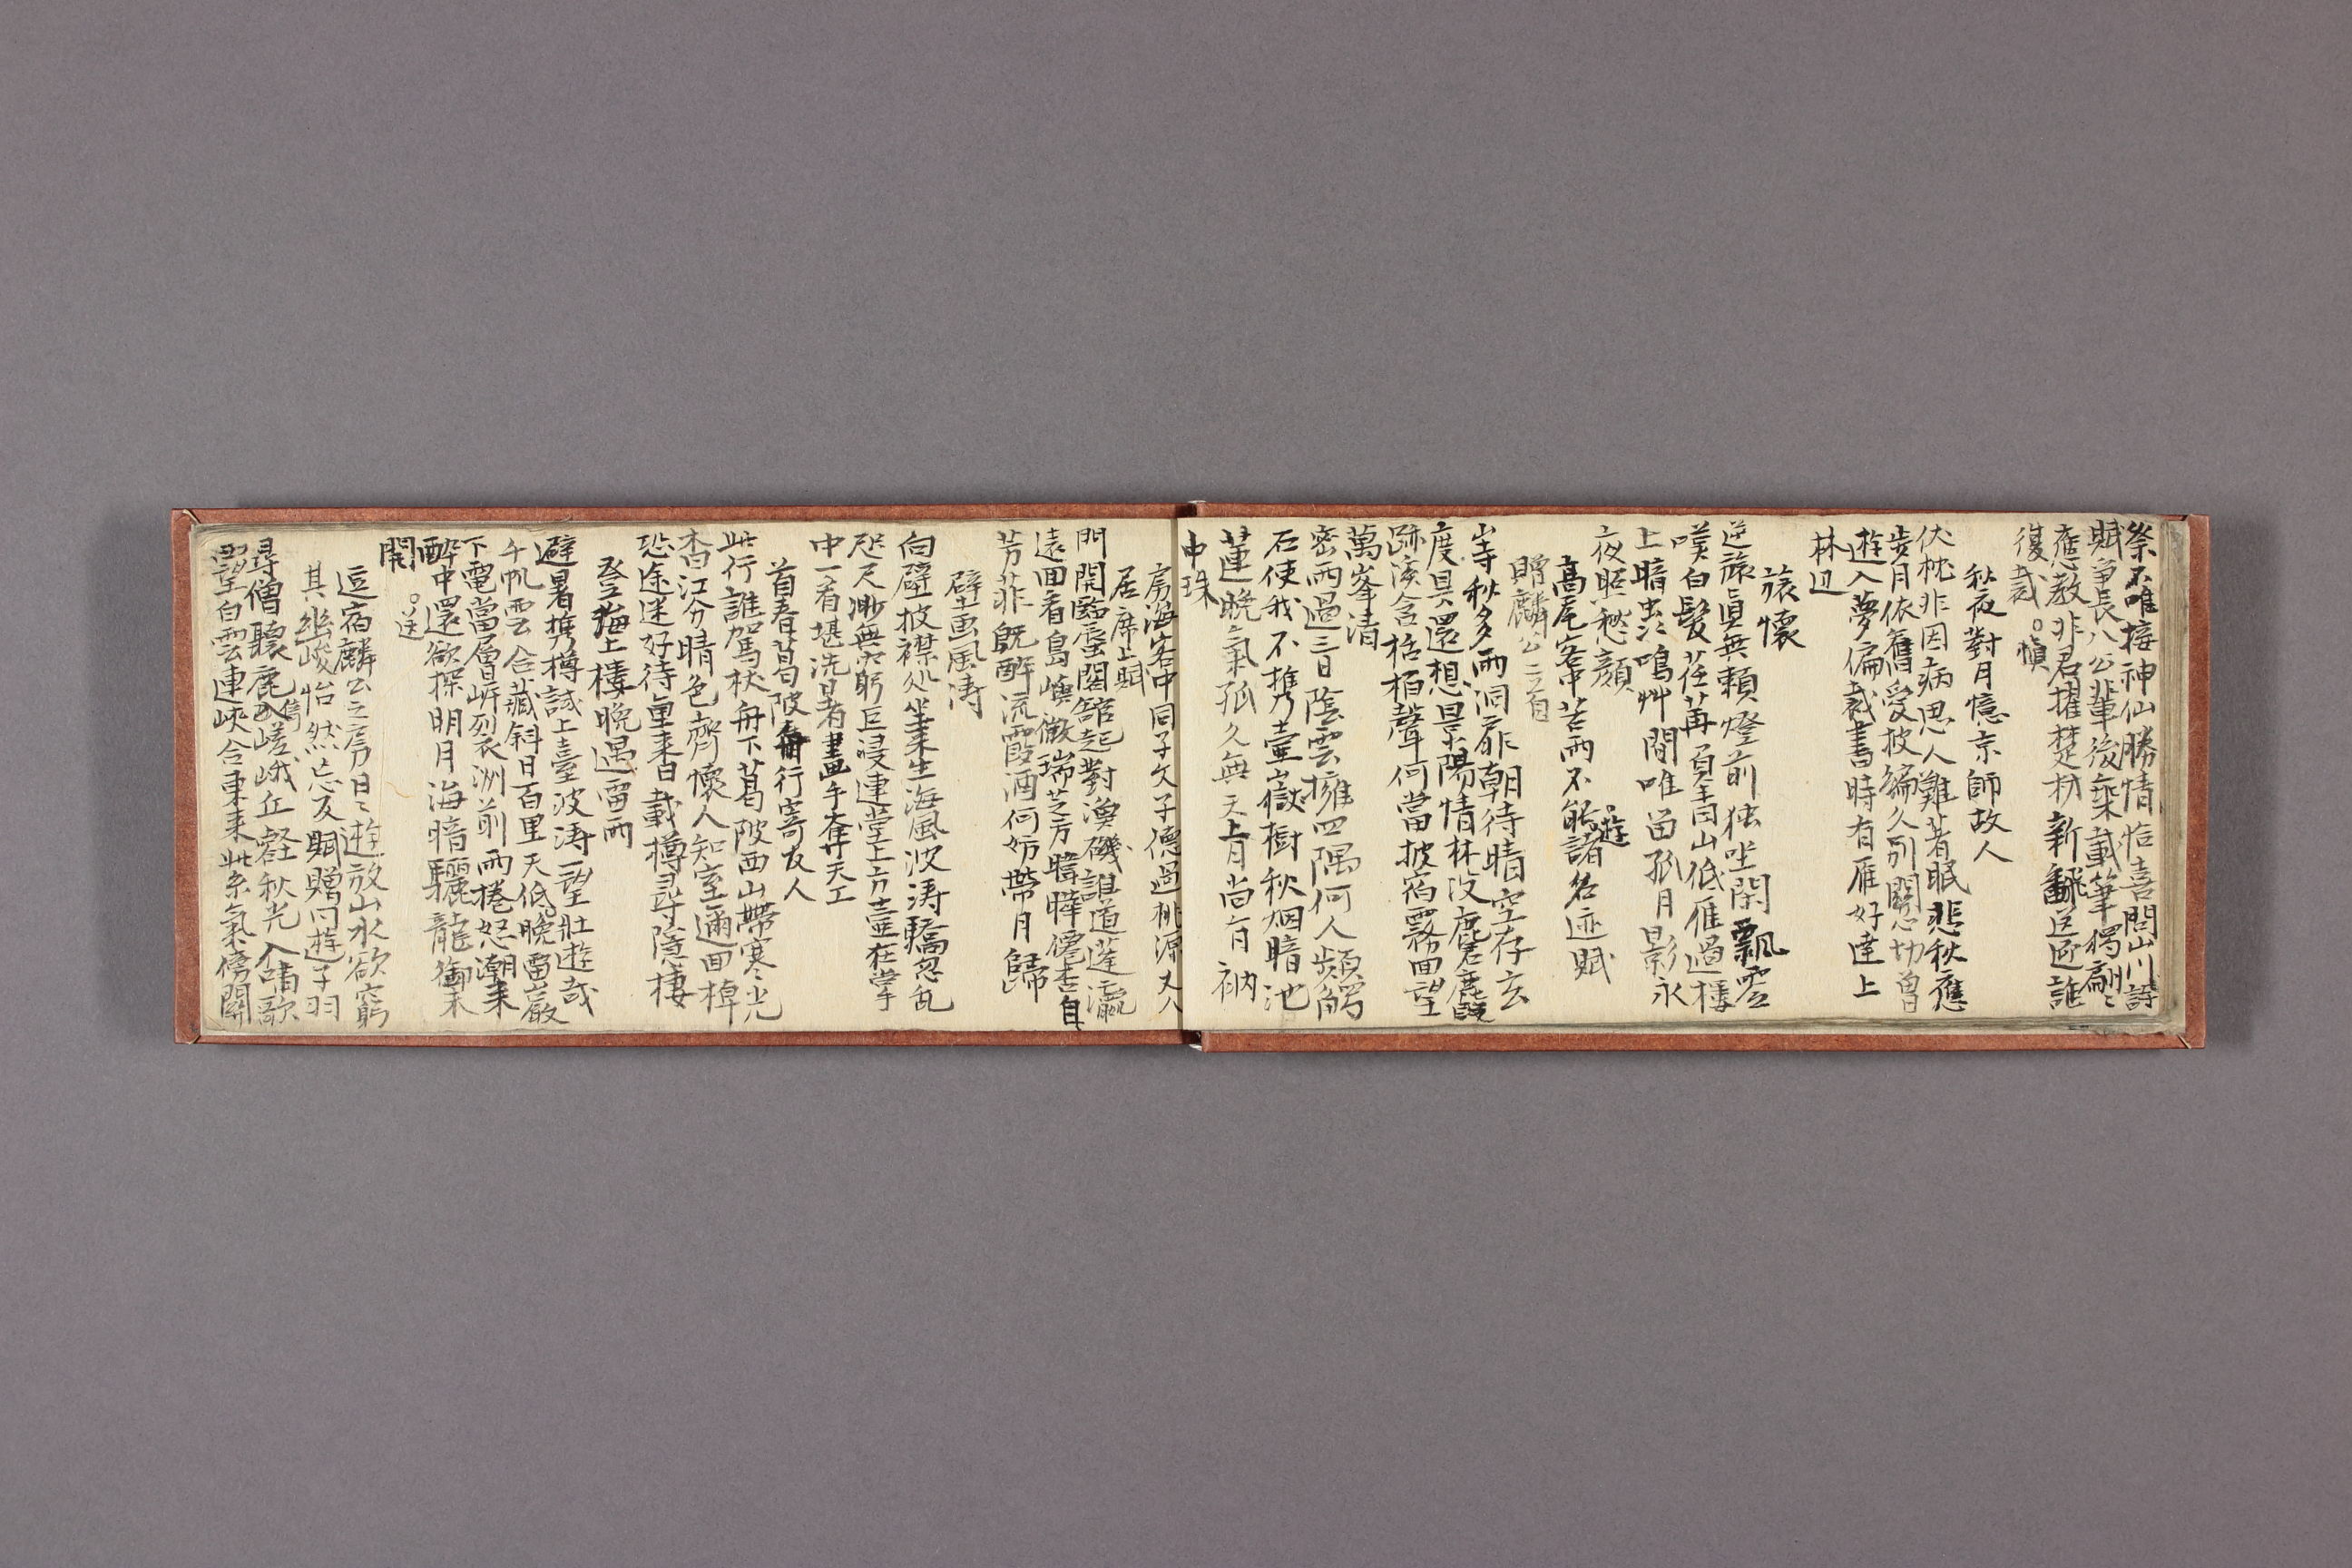 祭不唯接神仙勝情偏喜問山川詩
賦爭長八公輩後乘載筆獨翩〻
應教非君擢楚材新翻送迎誰
復裁。慎
秋夜對月憶京師故人
伏枕非因病思人難著眠悲秋應
步月依舊受披綸久別關心切曾
遊入夢偏裁書時有雁好達上
林辺
旅懷
逆旅眞無賴燈前独坐閑飄零
嘆白髮荏苒負青山低雁過樓
上暗虫鳴艸間唯留孤月影永
夜照愁顔
高尾客中苦雨不能遊諸名迹賦
贈麟公二首
峕秋多雨洞扉朝待晴空存玄
度具還想景陽情林没麏麚
跡溪含栝栢聲何當披宿霧回望
萬峯清
密雨過三日陰雲擁四隅何人頻觸
石使我不携壺嶽樹秋烟暗池
蓮晚氣孤久無天上月尚有衲
中珠
房海客中同子文子德過桃源丈人
居席上賦
門開臨蜃閣舘起對漁磯誰道蓬瀛
遠回看島嶼微瑞芝芳暐曄僊杏自
芳菲既醉流霞酒何妨帶月歸
壁画風涛
向壁披襟処坐来生海風波涛驕忽乱
咫尺渺無窮巨浸連堂上方壷在掌
中一看堪洗暑畫手奪天工
首春葛陂舟行寄友人
此行誰駕杖舟下葛陂西山帶寒光
杳江分晴色齊懷人知室邇回棹
恐途迷好待重来日載樽尋隱棲
登海上樓晚遇雷雨
避暑携樽試上臺波涛一望壯遊哉
千帆雲合藏斜日百里天低晚雷巖
下電當層嶂裂洲前雨捲怒潮来
醉中還欲探明月海暗驪龍御未
開。送
逗宿麟公之房日〻遊放山水欲窮
其幽峻怡然忘反賦贈同遊子羽
尋僧聽鹿入嵯峨丘壑秋光入嘯歌
望白雲連峽合東来紫氣傍關